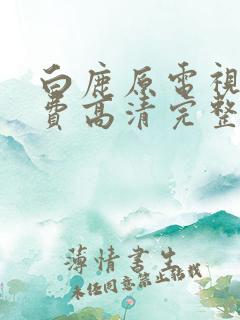 白鹿原電視
費高清完整
薄情書生
未经同意禁止转载